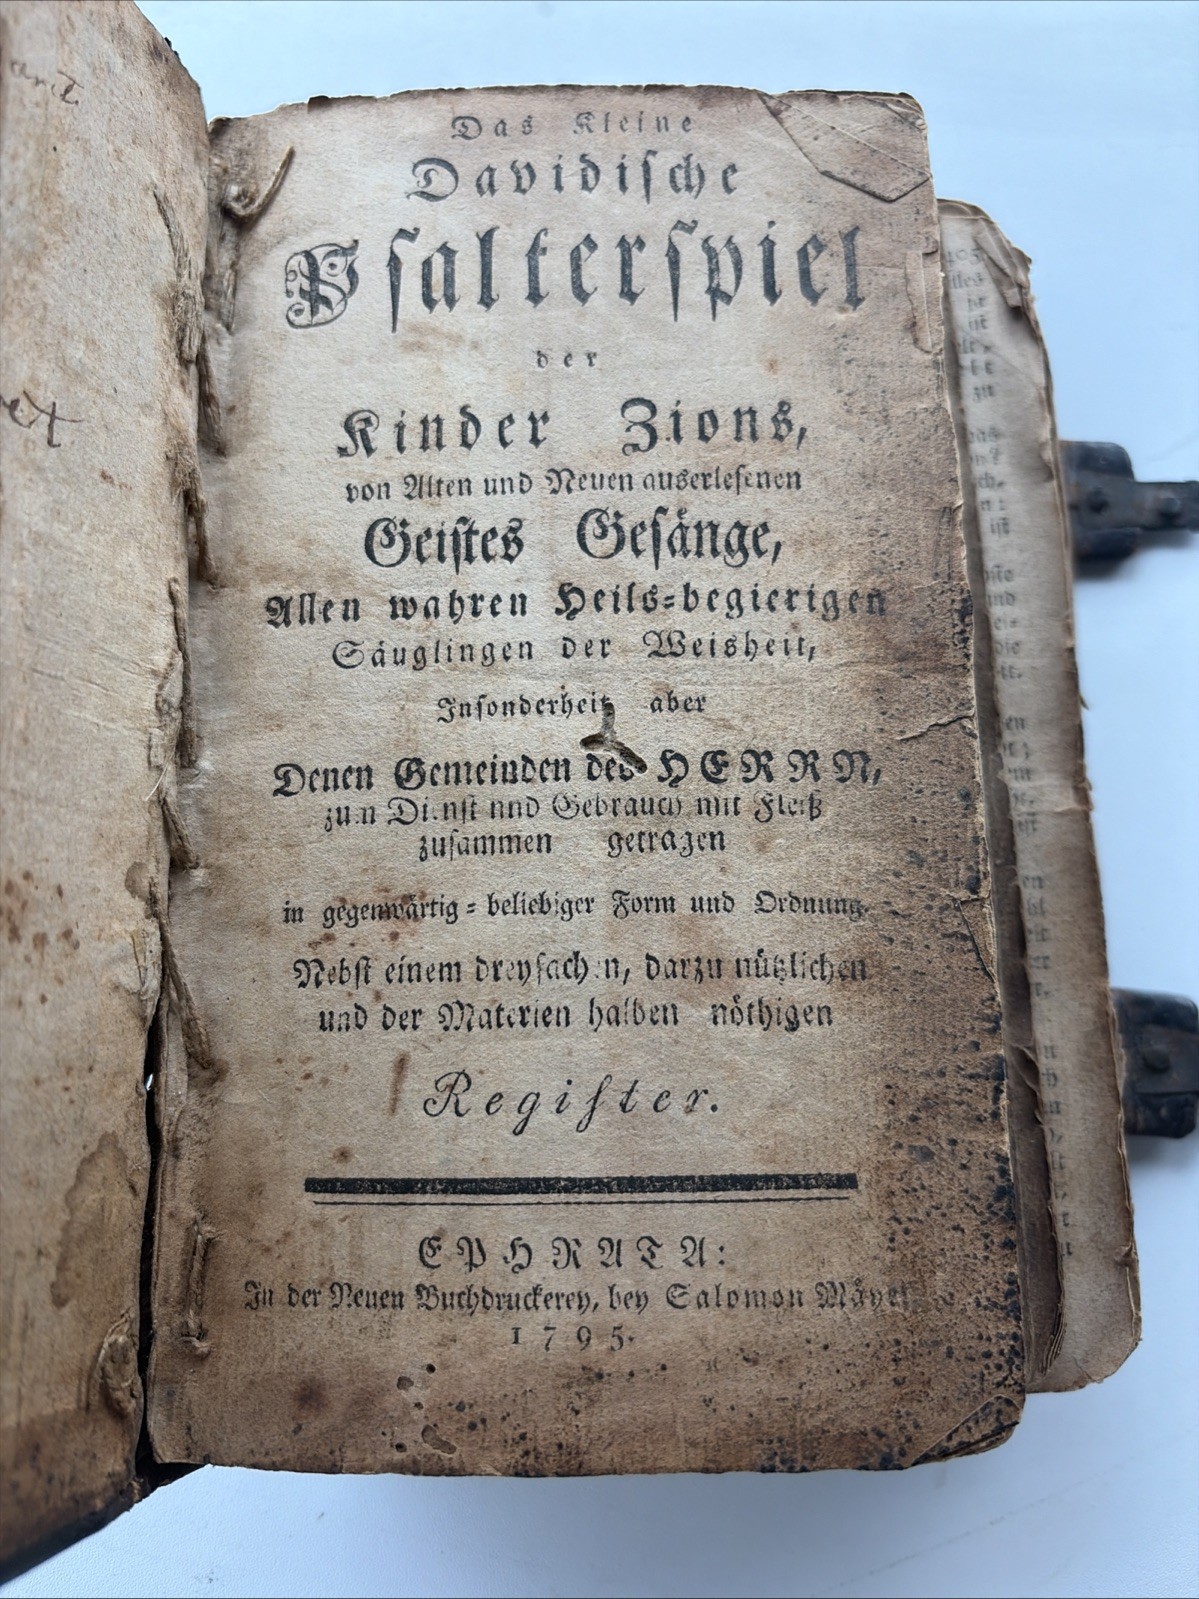 Das Kleine
Davidische
Psalterspiel
der
Kinder Zions,
von Alten und Neuen auserlesenen
Geistes Gesänge,
Allen wahren Heils=begierigen
Säuglingen der Weisheit,
Insonderheit aber
Denen Gemeinden des HERRN,
zum Dienst und Gebrauch mit Fleiß
zusammen getragen
in gegenwärtig=beliebiger Form und Ordnung.
Nebst einem dreyfachen, darzu nützlichen
und der Materien halben nöthigen
Register.
EPHRATA:
In der Neuen Buchdruckerey, bey Salomon Mäyer
1795.